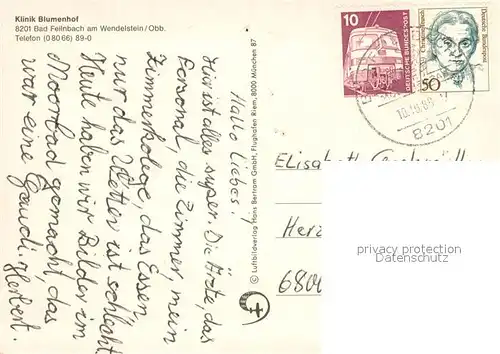 Klinik Blumenhof
8201 Bad Feilnbach am Wendelstein/Obb.
Telefon (0 80 66) 89-0
Hallo Liebes!
Hier ist alles super. Die Ärzte, das
Personal, die Zimmer, mein
Zimmerkollege, das Essen,
nur das Wetter ist schlecht
Heute haben wir Bilder im
Moorbad gemacht, das
war eine Gaudi. Herbert.
© Luftbildverlag Hans Bertram GmbH, Flughafen Riem, 8000 München 87
10
DEUTSCHE BUNDESPOST
Deutsche Bundespost
50
8201
Elisabeth
Herz
6800
privacy protection
Datenschutz